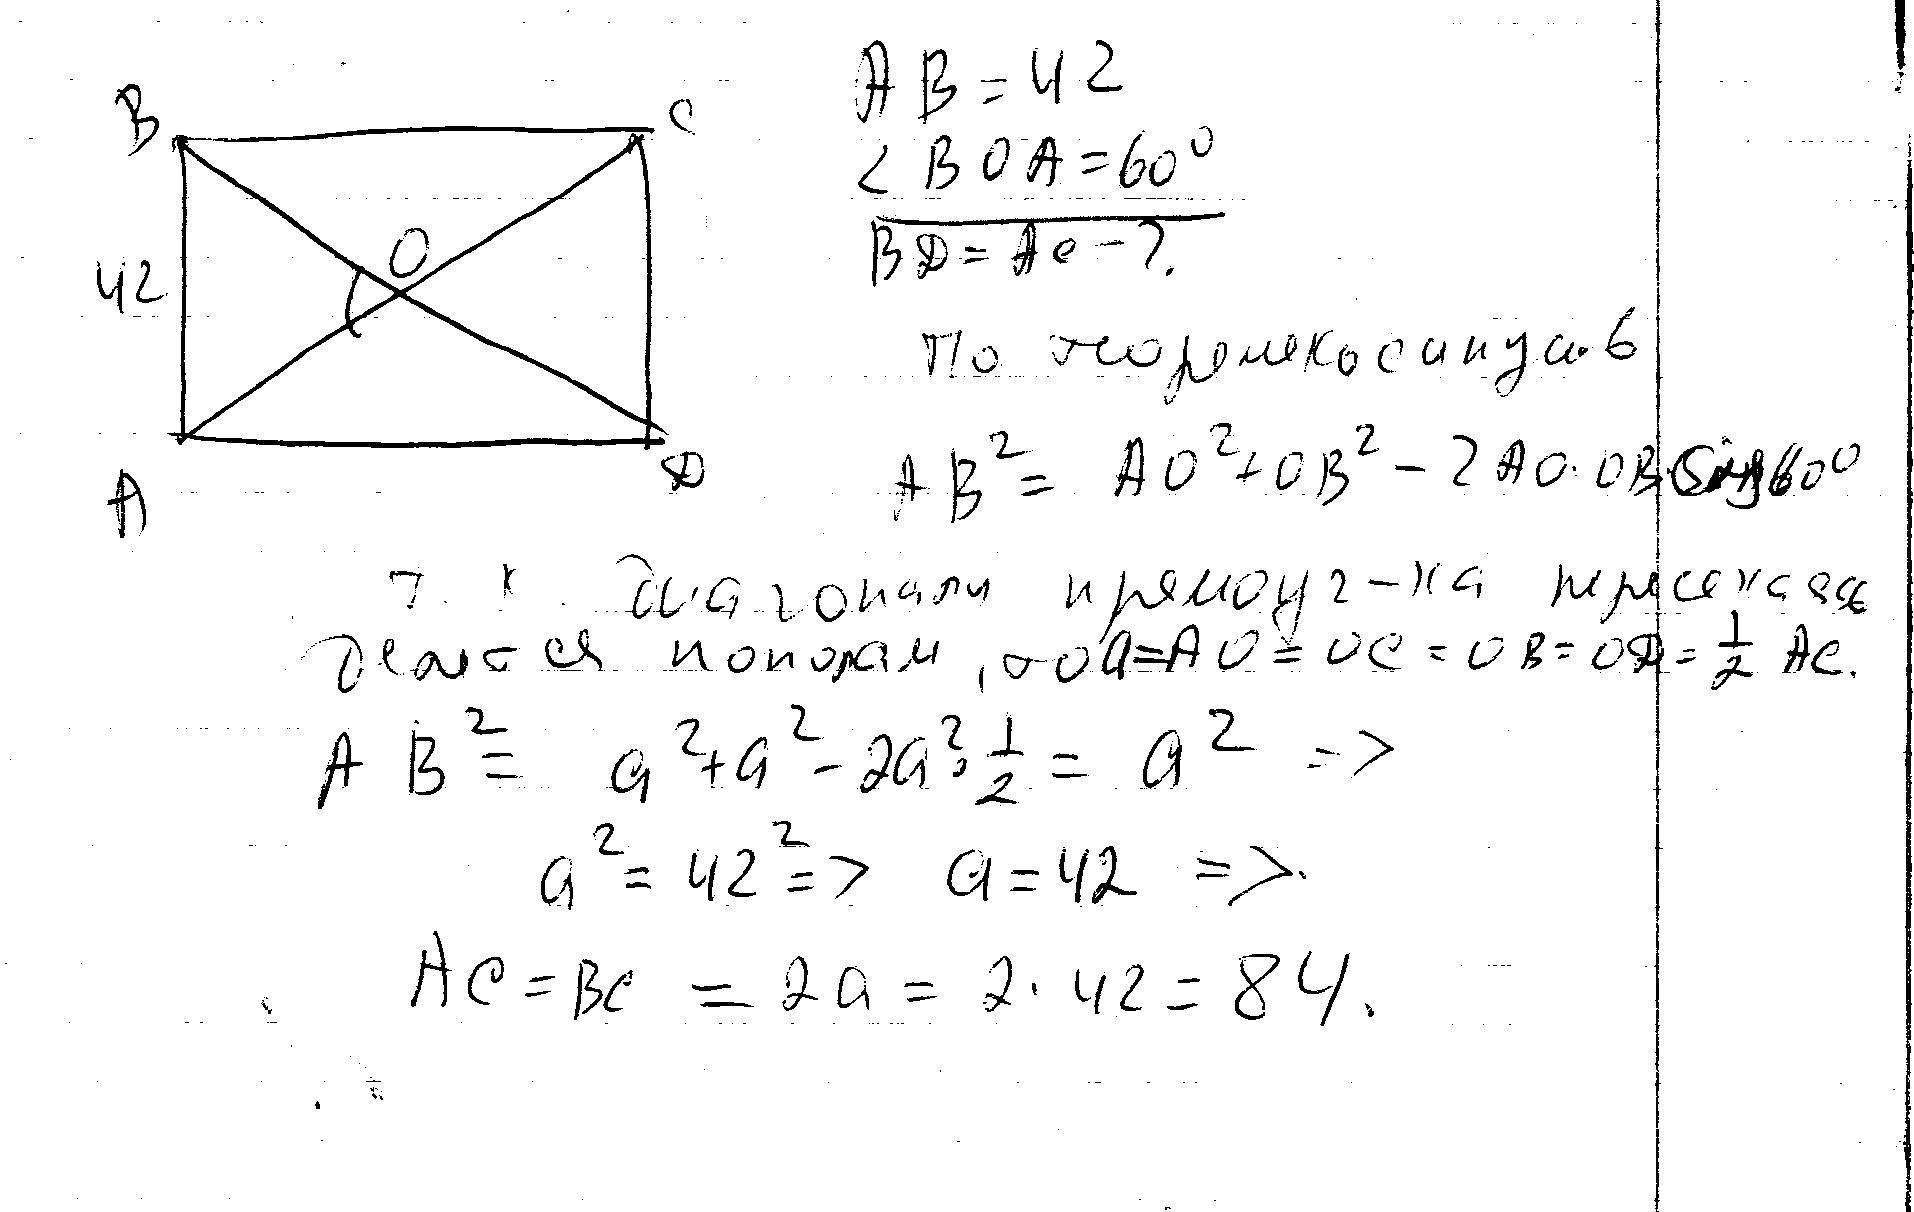 B
C
O
42
A
D
AB = 42
∠BOA = 60⁰
BD = AC - ?
По теореме косинусов
AB² = AO² + OB² - 2AO·OB·60⁰
т.к диагонали прямоуг-ка пересекаясь
делятся пополам, то a=AO=OC=OB=OD=1/2 AC.
AB² = a² + a² - 2a²·1/2 = a² =>
a² = 42² => a = 42 =>.
AC = BC = 2a = 2·42 = 84.